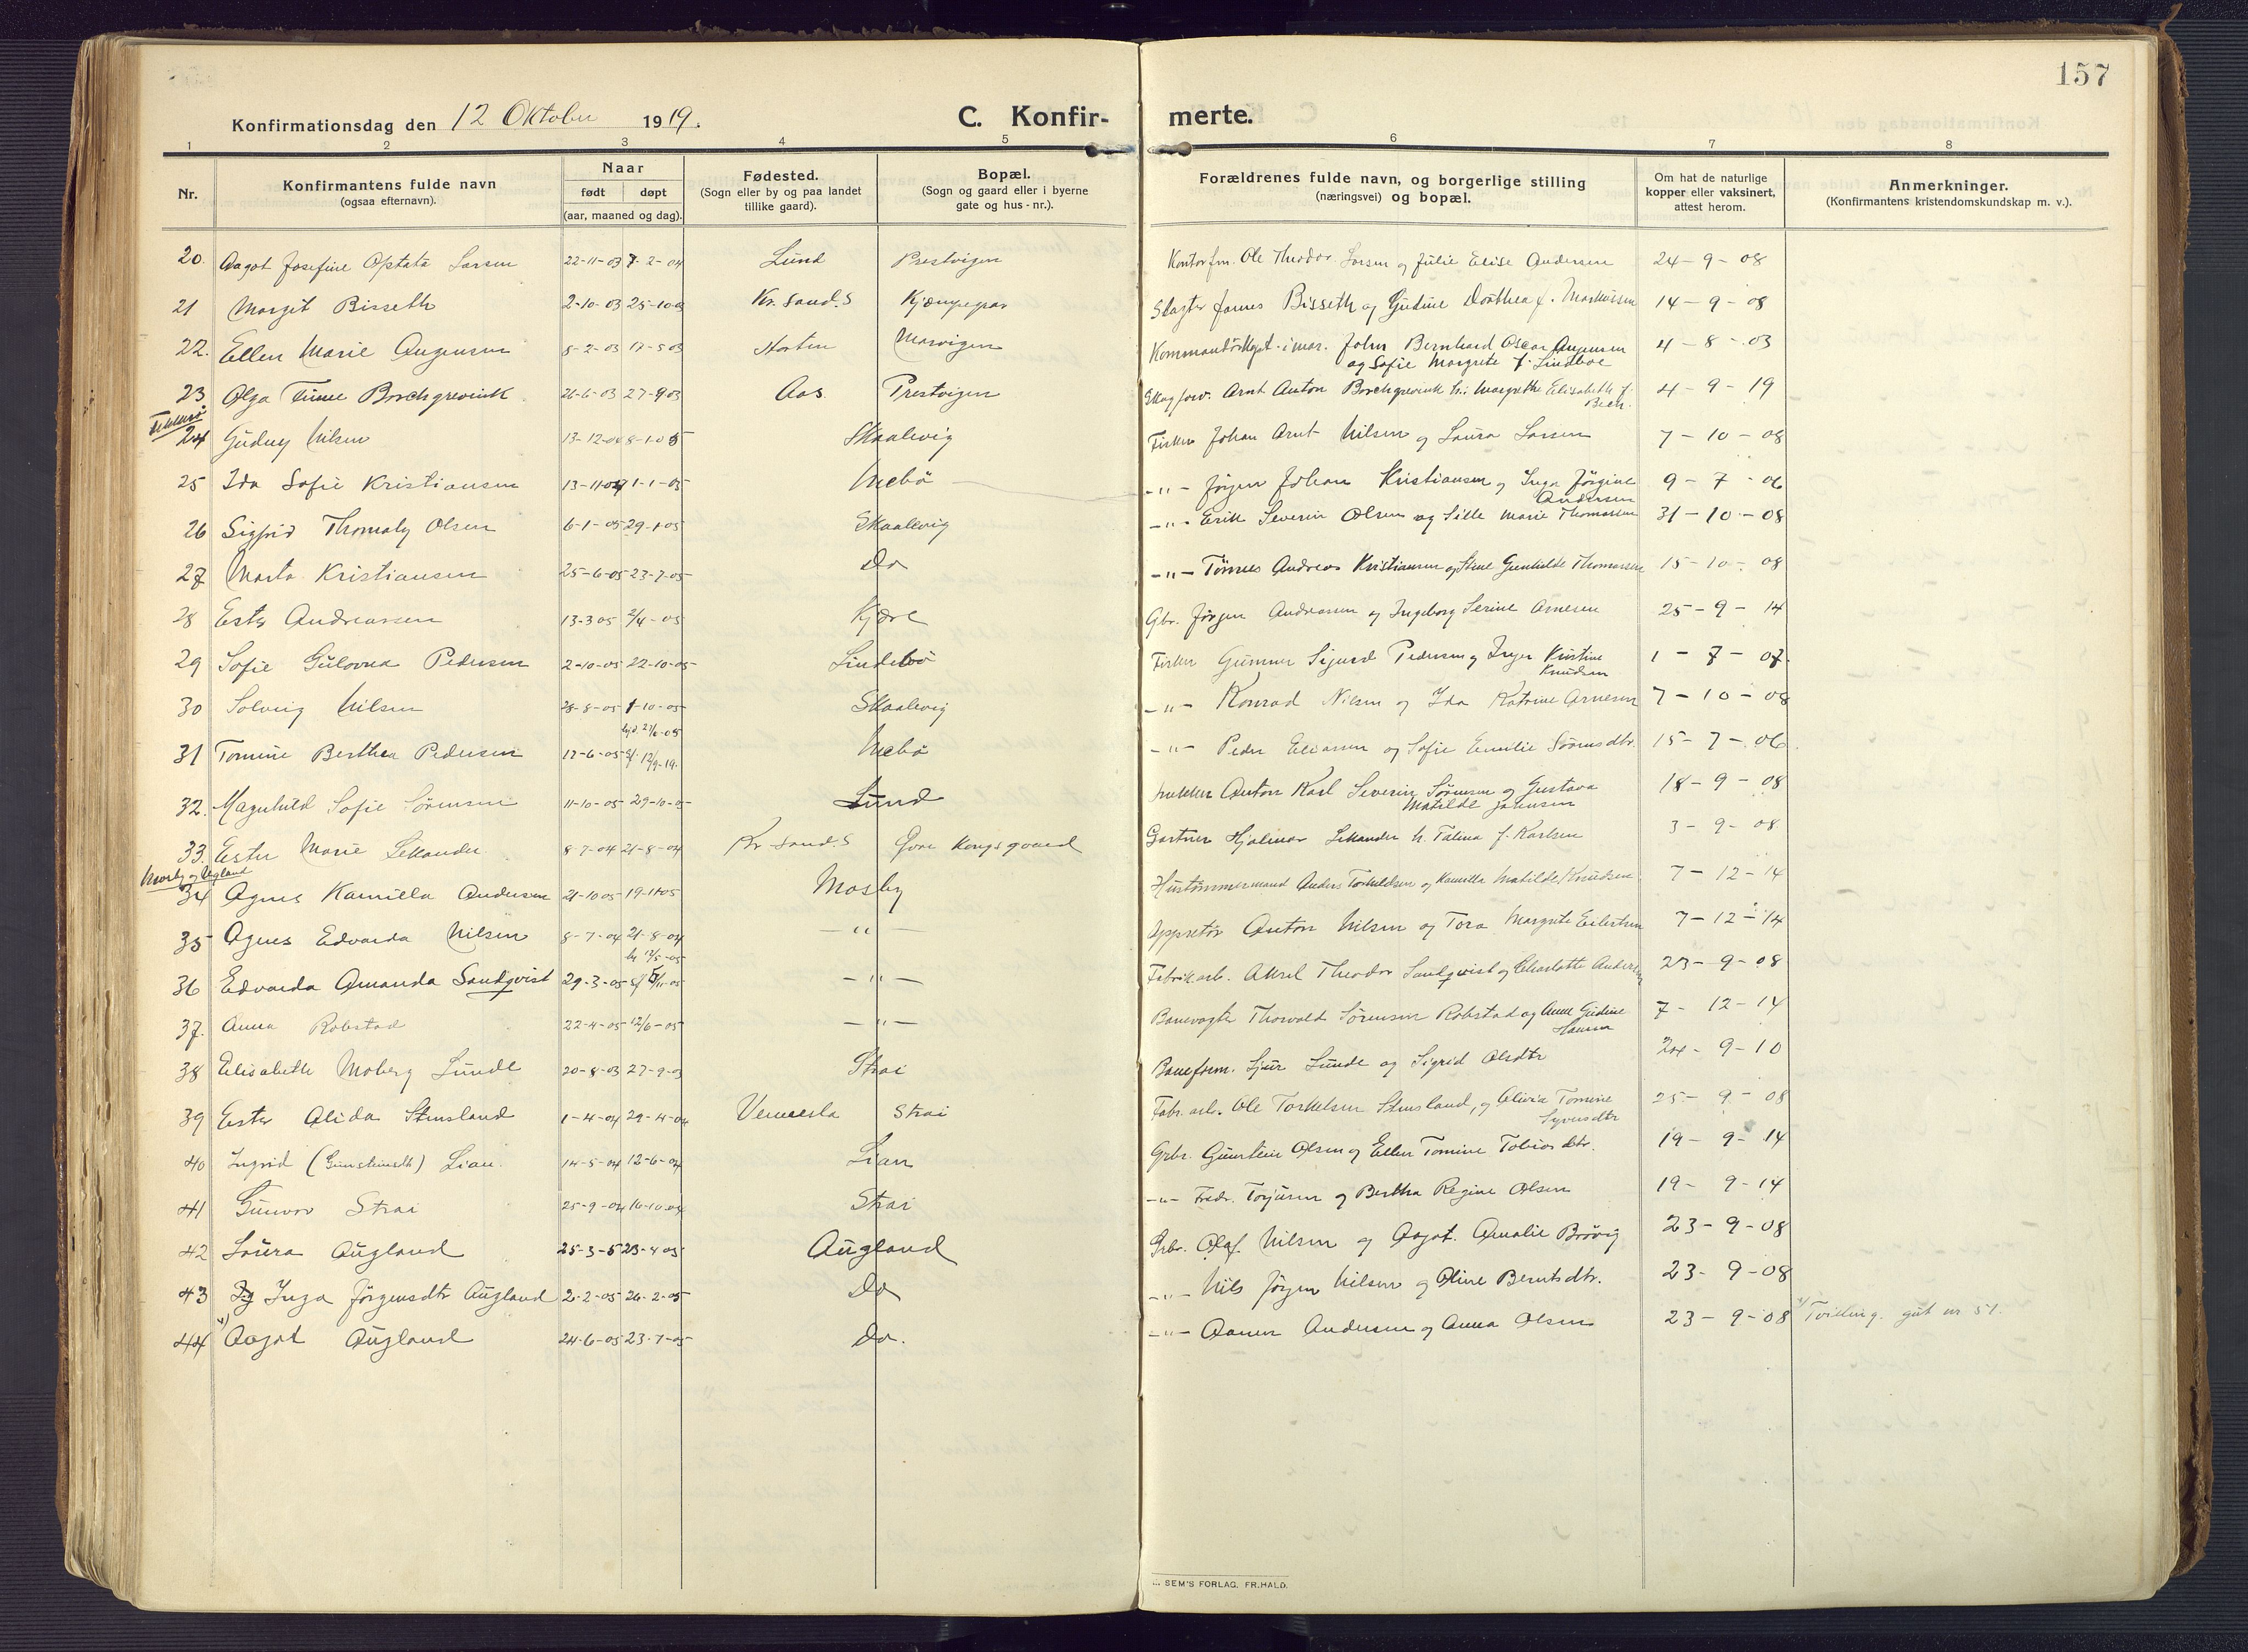 157
Konfirmationsdag den 12 Oktober 1919.
C. Konfir- merte.
1 2 3 4 5 6 7 8
Nr.
Konfirmantens fulde navn
(ogsaa efternavn).
Naar
født døpt
(aar, maaned og dag).
Fødested.
(Sogn eller by og paa landet
tillike gaard).
Bopæl.
(Sogn og gaard eller i byerne
gate og hus-nr.).
Forældrenes fulde navn, og borgerlige stilling
(næringsvei) og bopæl.
Om hat de naturlige
kopper eller vaksinert,
attest herom.
Anmerkninger.
(Konfirmantens kristendomskundskap m. v.).
20. Aagot Josefine Optata Larsen 22-11-03 7-2-04 Lund Prestvigen Kontorfm. Ole Theodor Larsen og Julie Elise Andersen 24-9-08
21 Margit Bisseth 2-10-03 25-10-03 Kr. sand. S Slagter James Bisseth og Gudine Dorthea f. Markussen 14-9-08
22. Ellen Marie 8-2-03 17-5-03 Horten Marvigen John Bernhard Oscar
og Sofie Margrete f. Lindboe 4-8-03
23 Olga Borchgrevink 26-6-03 27-9-03 Aas Prestvigen Skogforv. Arnt Anton Borchgrevink h. Margrethe Elisabeth f.
Bech. 4-9-19
24 Gudny Nilsen 13-12-04 8-1-05 Skaalevig Fisker Johan Arnt Nilsen og Laura Larsen 7-10-08
25 Ida Sofie Kristiansen 13-11-04 1-1-05 Mebö -"- Jörgen Johan Kristiansen og Inga Jörgine
Andersen 9-7-06
26 Sigfrid Thomaly Olsen 6-1-05 29-1-05 Skaalevig -"- Erik Severin Olsen og Sille Marie Thomassen 31-10-08
27 Marta Kristiansen 25-6-05 23-7-05 Do -"- Tönnes Andreas Kristiansen og Stine Gunhilde Thomassen 15-10-08
28 Ester Andreassen 13-3 05 2/4-05 Kjære Gbr. Jörgen Andreassen og Ingeborg Serine Arnesen 25-9-14
29 Sofie Gulovna Pedersen 2-10-05 22-10-05 Lindebö Fisker Gunner Sigurd Pedersen og Inger Kristine
Knudsen 1-7-07.
30 Solveig Nilsen 28-8-05 1-10-05 Skaalevig -"- Konrad Nilsen og Ida Katrine Arnesen 7-10-08
31 Tomine Berthea Pedersen 17-6-05 12/9-19. Mebö -"- Peder Eliassen og Sofie Emilie Sörensdtr. 15-7-06
32. Magnhild Sofie Sörensen 11-10-05 29-10-05 Lund Anton Karl Severin Sörensen og Gustava
Matilde Johnsen 18-9-08
33. Ester Marie Lekander 8-7-04 21-8-04 Kr sand. S Övre Kongsgaard Gartner Hjalmar Lekander h. Talina f. Karlsen 3-9-08
Mosby og Augland
34 Agnes Kamilla Andersen 21-10 05 19-11-05 Mosby Hustømmermand Anders Torkeldsen og Kamilla Matilde Knudsen 7-12-14
35 Agnes Edvarda Nilsen 8-7-04 21-8-04 -"- Oppsetör Anton Nilsen og Tora Margrete Eilertsen 7-12-14
36 Edvarda Amanda Sandqvist 29-3-05 -"- Fabrik.arb. Aksel Theodor Sandqvist og Charlotte Andersen 23-9-08
37. Anna Robstad 22-4-05 12/6-05 -"- Banevogter Thorvald Sörensen Robstad og Anne Gudine
Hansen 7-12-14
38 Elisabeth Moberg Lunde 20-8-03 27-9-03 Strai Baneform. Sjur Lunde og Sigrid Olsdtr 24-9-10
39 Ester Alida Stensland 1-4-04 29-4-04 Vennesla Strai Fabr.arb. Ole Torkelsen Stensland, og Olivia Tomine
Syversdtr 25-9-08
40 Ingrid (Gunsteinsdt) Lian. 14-5-04 12-6-04 Lian Grbr. Gunstein Olsen og Ellen Tomine Tobiasdtr. 19-9-14
41 Gunvor Strai 25-9-04 16-10-04 Strai -"- Fredr. Torjusen og Bertha Regine Olsen 19-9-14
42 Laura Augland 25-3-5 23-4 05 Augland Grbr. Olaf Nilsen og Aagot Amalie Brövig 23-9-08
43 Inga Jörgensdtr Augland 2-2-05 26-2-05 Do -"- Nils Jörgen Nilsen og Oline Berntsdtr. 23-9-08
44 x) Aagot Augland 24-6-05 23-7-05 Do. -"- Aanen Andersen og Anna Olsen 23-9-08 x) Tvilling. gut nr 51.
SEM'S FORLAG. FR.HALD.